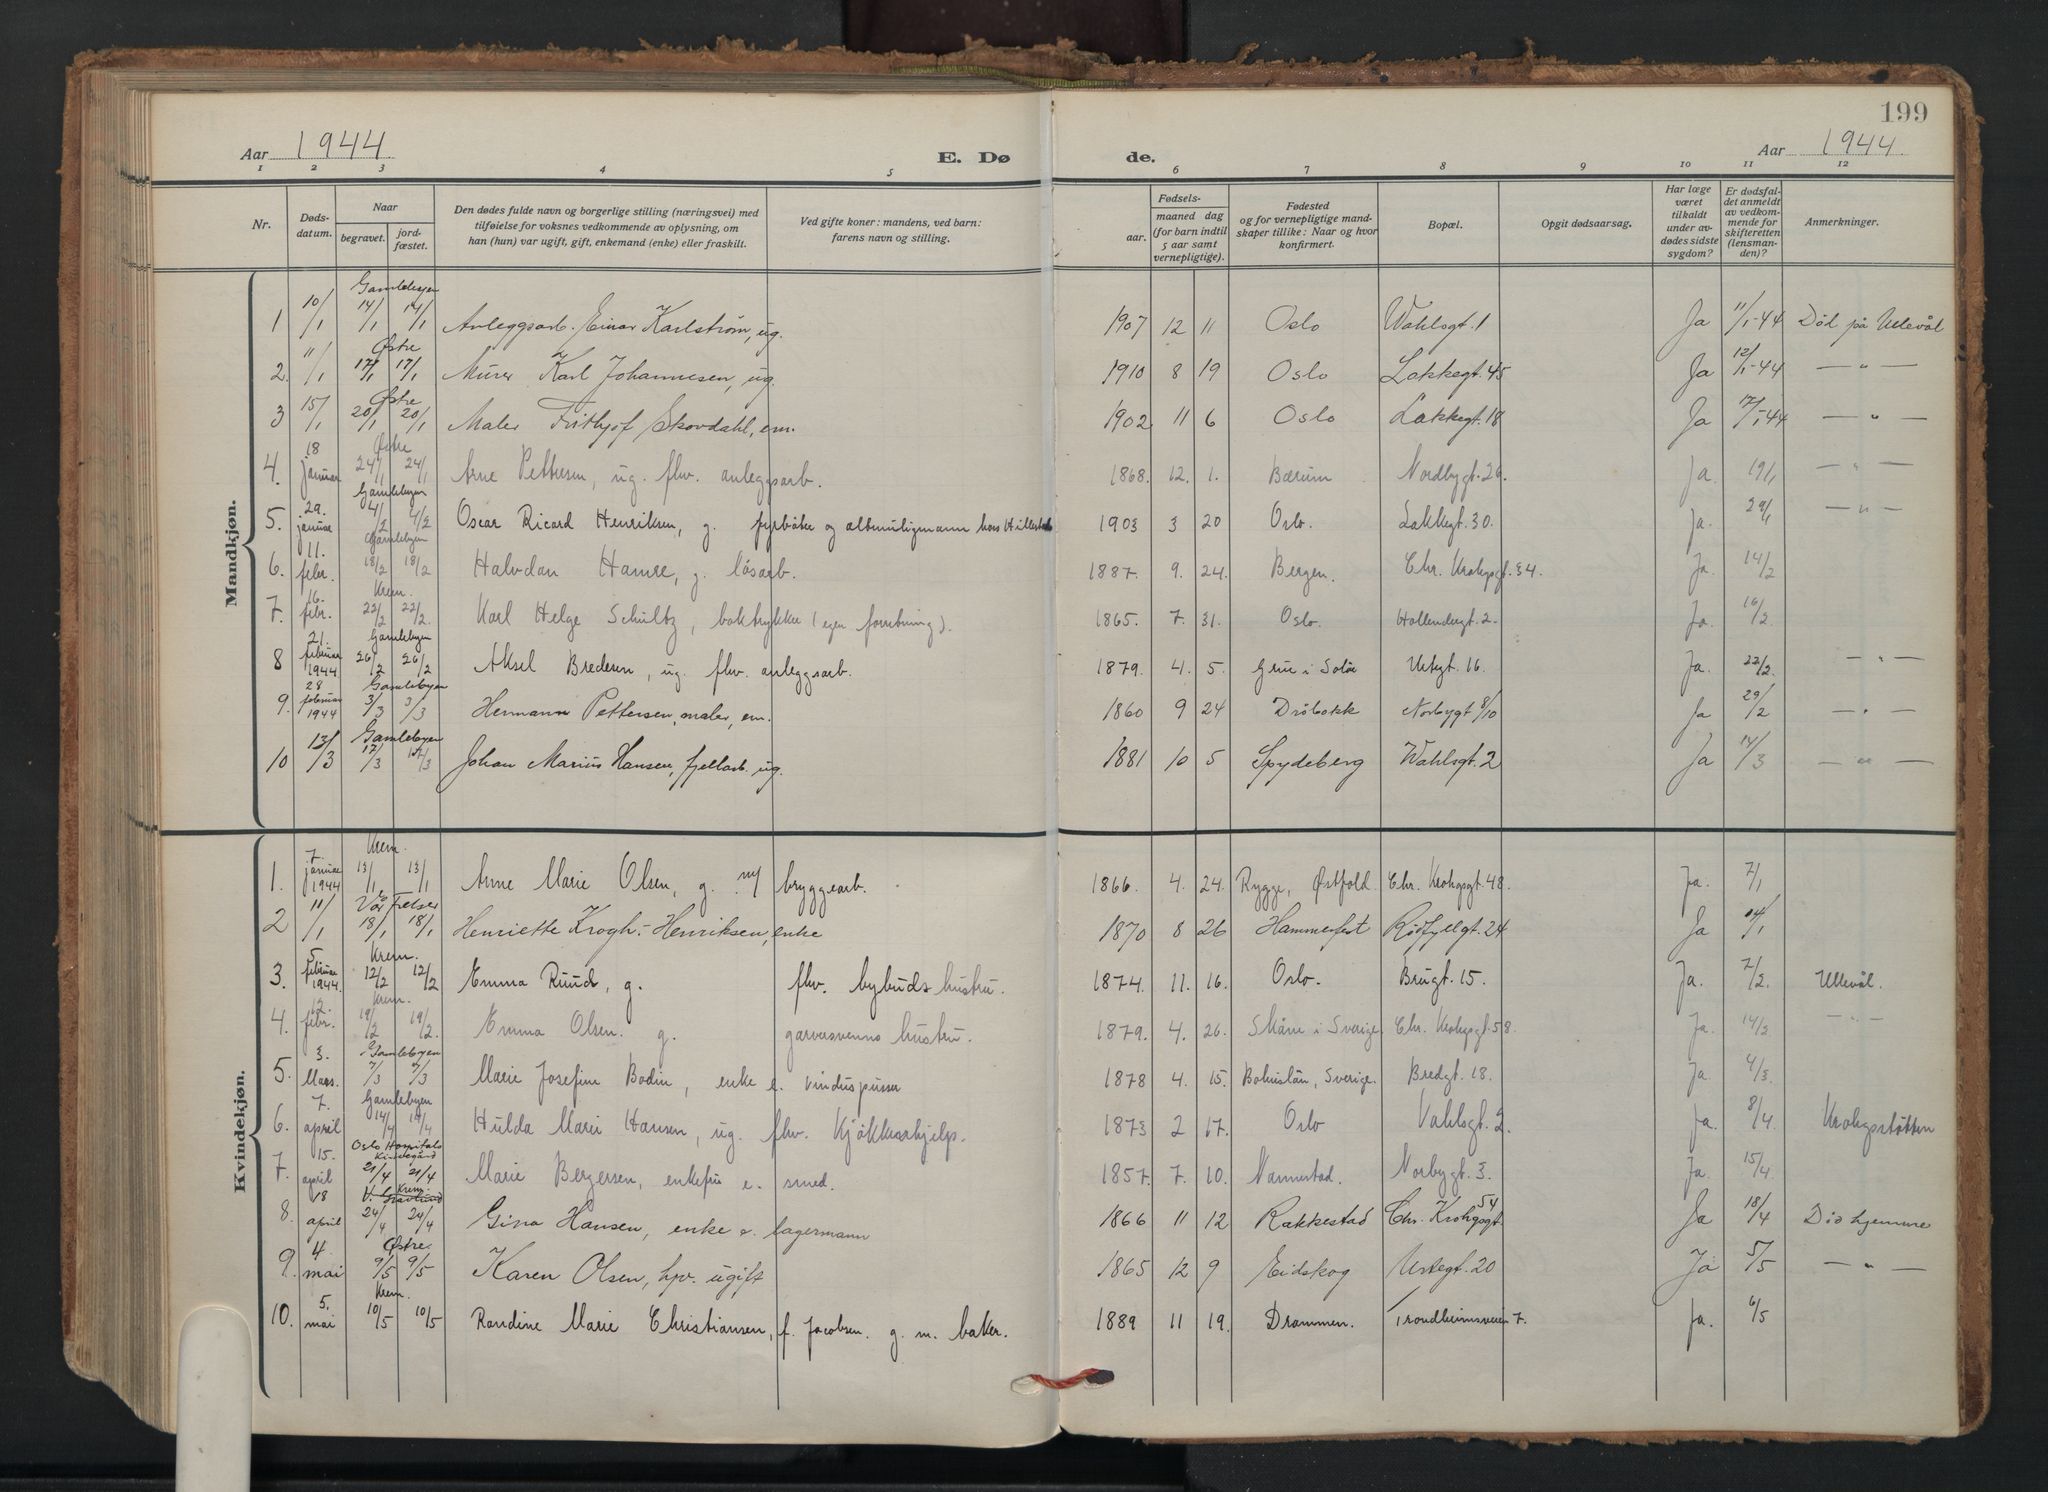 199
Aar 1944 E. Dø de. Aar 1944
1 2 3 4 5 6 7 8 9 10 11 12
Nr. Døds-datum. Naar begravet. jord-fæstet. Den dødes fulde navn og borgerlige stilling (næringsvei) med tilføielse for voksnes vedkommende av oplysning, om han (hun) var ugift, gift, enkemand (enke) eller fraskilt. Ved gifte koner: mandens, ved barn: farens navn og stilling. Fødsels- aar. maaned dag (for barn indtil 5 aar samt vernepligtige). Fødested og for vernepligtige mandskaper tillike: Naar og hvor konfirmert. Bopæl. Opgit dødsaarsag. Har læge været tilkaldt under avdødes sidste sygdom? Er dødsfaldet anmeldt av vedkommende for skifteretten (lensmanden)? Anmerkninger.
Mandkjøn.
Gamlebyen
1 10/1 14/1 14/1 Anleggsarb. Einar Karlstrøm, ug. 1907 12 11 Oslo Wahlsgt. 1 Ja 11/1-44 Død på Ullevål
Østre
2. 11/1 17/1 17/1 Murer Karl Johannesen, ug. 1910 8 19 Oslo Lakkegt. 45 Ja 12/1-44 — " —
Østre
3 15/1 20/1 20/1 Maler Frithjof Skovdahl, em. 1902 11 6 Oslo Lakkegt. 18 Ja 17/1-44 — " —
Østre
4. 18 januar 24/1 24/1 Arne Pettersen, ug. fhv. anleggsarb. 1868. 12. 1. Bærum Nordbygt. 26. Ja. 19/1 — " —
Gamlebyen
5. 29. januar 4/2 4/2 Oscar Ricard Henriksen, g. fyrbøter og altmuligmann hos 1903 3 20 Oslo. Lakkegt. 30. Ja. 29/1 — " —
Gamlebyen
6. 11. febr. 18/2 18/2 Halvdan Hamre, g. løsarb. 1887. 9. 24. Bergen. Chr. Krohgsgt. 34. Ja. 14/2
Krem.
7. 16. febr. 22/2 22/2. Karl Helge Schultz, boktrykker (egen forretning). 1865. 7. 31. Oslo. Hollendergt. 2. Ja. 16/2
Gamlebyen
8 21. februar 1944 26/2 26/2 Aksel Bredesen, ug. fhv. anleggsarb. 1879. 4. 5. Grue i Solør Urtegt. 16. Ja. 22/2. — " —
Gamlebyen
9. 28 februar 1944 3/3 3/3 Hermann Pettersen, maler, em. 1860 9 24 Drøbakk Norbygt 8/10 Ja 29/2 — " —
Gamlebyen
10 13/3 17/3 17/3 Johan Marius Hansen, fjellarb. ug. 1881 10 5 Spydeberg Wahlsgt. 2 Ja 14/3 — " —
Kvindekjøn.
Krem.
1. 7. januar 1944 13/1 13/1 Anne Marie Olsen, g. m/ bryggearb. 1866. 4. 24. Rygge, Østfold. Chr. Krohgsgt. 48. Ja. 7/1
Vår Frelser
2 11/1 18/1 18/1 Henriette Krogh-Henriksen, enke 1870 8 26 Hammerfest Rødfyllgt. 24 Ja 14/1
Krem.
3. 5. februar 1944. 12/2 12/2 Emma Ruud, g. fhv. bybuds hustru. 1874. 11. 16. Oslo. Brugt. 15. Ja. 7/2 Ullevål.
Krem
4. 12. febr. 19/2 19/2. Emma Olsen. g. garversvenns hustru. 1879. 4. 26. Skåne i Sverige Chr. Krohgsgt. 58. Ja. 14/2 — " —
Gamlebyen
5. 3. Mars. 7/3 7/3 Marie Josefine Bodin, enke e. vinduspusser 1878 4. 15. Bohuslän, Sverige. Bredgt. 18. Ja. 4/3.
Gamlebyen
6. 7. april 14/4 14/4 Hulda Marie Hansen, ug. fhv. Kjøkkenhjelp. 1873 2 17. Oslo Vahlsgt. 2. Ja. 8/4 Krohgstøtten
Oslo Hospitals Kirkegård
7. 15. april 21/4 21/4 Marie Bergersen, enkefru e. smed. 1857. 7. 10. Nannestad. Norbygt. 3. Ja. 15/4.
Krem. V. Gravlund
8. 18 april 24/4 24/4 Gina Hansen, enke e. lagermann 1866 11 12 Rakkestad Chr. Krohgsgt. 54 Ja 18/4 Død hjemme
Østre.
9. 4. mai 9/5 9/5 Karen Olsen, hpv. ugift 1865 12 9 Eidskog Urtegt. 20 Ja 5/5 — " —
Krem.
10. 5. mai 10/5 10/5 Randine Marie Christiansen, f. Jacobsen. g. m. baker. 1889 11 19. Drammen. Trondheimsveien 7. Ja. 6/5